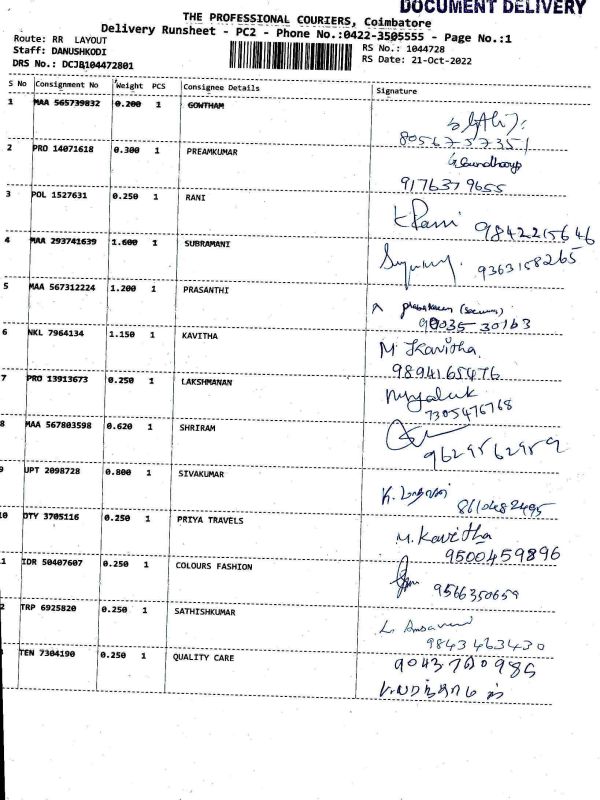 DOCUMENT DELIVERY
THE PROFESSIONAL COURIERS, Coimbatore
Delivery Runsheet - PC2 - Phone No.:0422-3505555 - Page No.:1
Route: RR LAYOUT
RS No.: 1044728
Staff: DANUSHKODI
RS Date: 21-Oct-2022
DRS No.: DCJB104472801
S No Consignment No Weight PCS Consignee Details Signature
1 MAA 565739832 0.200 1 GOWTHAM
8056737351
2 PRO 14071618 0.300 1 PREAMKUMAR
9176379655
3 POL 1527631 0.250 1 RANI
K Rani 9842215646
4 MAA 293741639 1.600 1 SUBRAMANI
9363158265
5 MAA 567312224 1.200 1 PRASANTHI
90035 30163
6 NKL 7964134 1.150 1 KAVITHA
M Kavitha.
9894165476
7 PRO 13913673 0.250 1 LAKSHMANAN
7305476768
8 MAA 567803598 0.620 1 SHRIRAM
9629562959
9 UPT 2098728 0.800 1 SIVAKUMAR
8610482495
10 DTY 3705116 0.250 1 PRIYA TRAVELS
M. Kavitha
9500459896
1 IDR 50407607 0.250 1 COLOURS FASHION
9566350659
2 TRP 6925820 0.250 1 SATHISHKUMAR
9843463430
TEN 7304190 0.250 1 QUALITY CARE